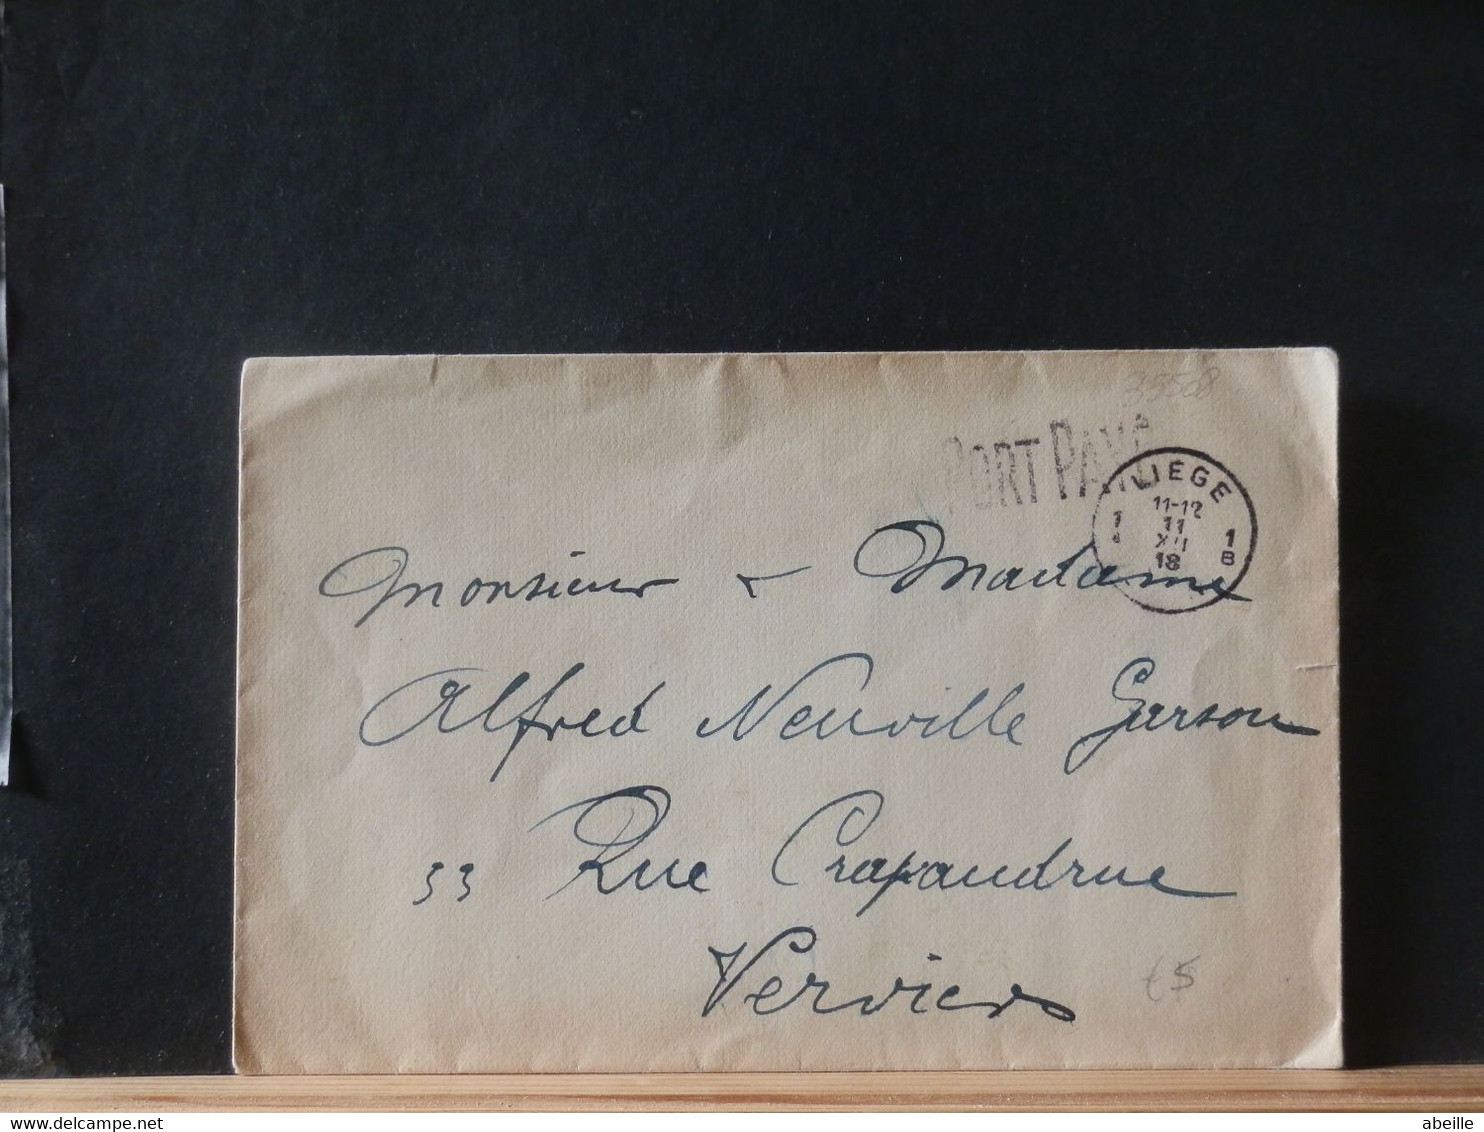 35508
PORT PAYÉ
LIEGE
11-12
1 11 1
XII
18 B
Monsieur & Madame
Alfred Neuville Garson
33 Rue Crapaudrue
Verviers
€5
www.delcampe.net
abeille